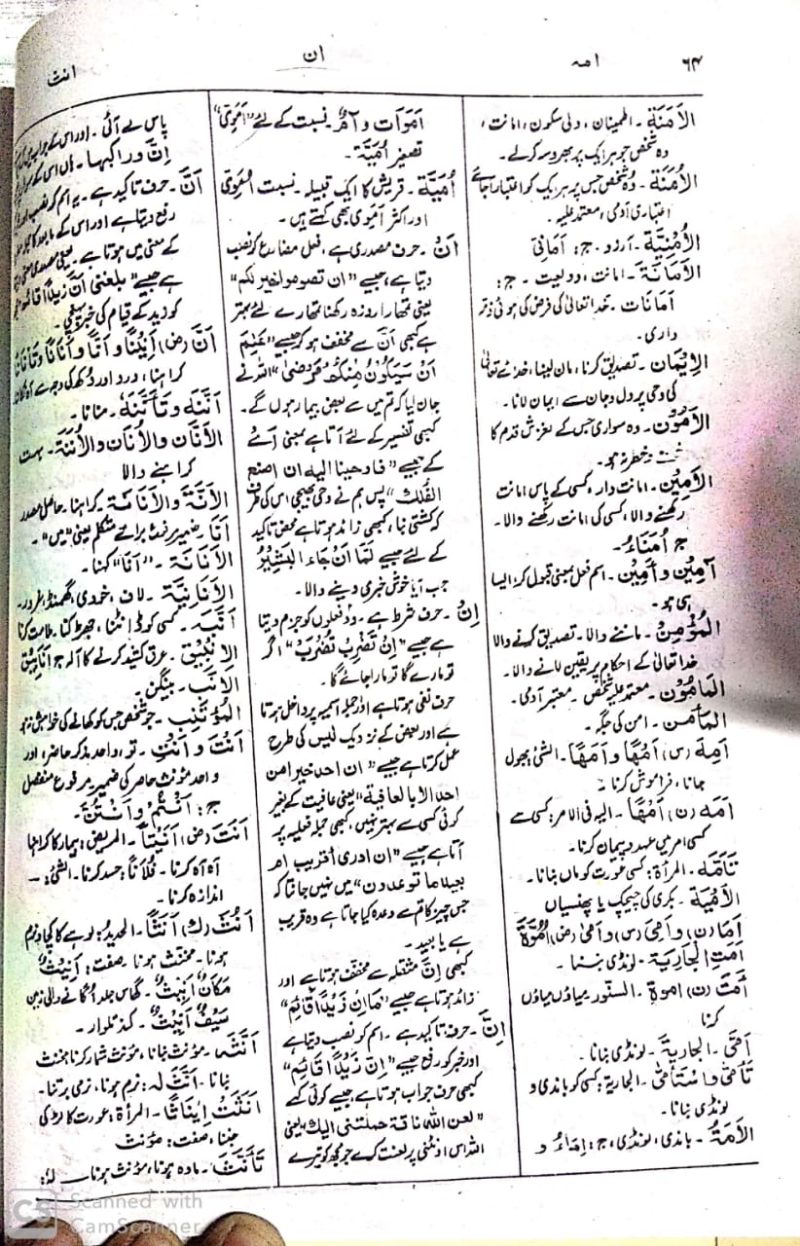 ۶۴
امہ
ان
انث
الأَمَنَة ۔ اطمینان، دلی سکون، امانت،
وہ شخص جو ہر ایک پر بھروسہ کرلے۔
الأُمَنَة ۔ وہ شخص جس پر ہر ایک کو اعتبار آجائے
اعتباری آدمی، معتمد علیہ۔
الأُمْنِيَّة ۔ آرزو ۔ ج: أَمَانِيّ
الأَمَانَة ۔ امانت، ودیعت ۔ ج:
أَمَانَات ۔ خدا تعالیٰ کی فرض کی ہوئی ذمہ
داری۔
الإِيْمَان ۔ تصدیق کرنا، مان لینا، خدائے تعالیٰ
کی وحی پر دل و جان سے ایمان لانا۔
الأَمُوْن ۔ وہ سواری جس کے لغزش قدم کا
خطرہ نہ ہو۔
الأَمِيْن ۔ امانت دار، کسی کے پاس امانت
رکھنے والا، کسی کی امانت رکھنے والا۔
ج أُمَنَاءُ۔
آمِيْن وأَمِيْن ۔ اسم فعل بمعنی قبول کر، ایسا
ہی ہو۔
المُؤْمِن ۔ ماننے والا ۔ تصدیق کرنے والا
خدا تعالیٰ کے احکام پر یقین لانے والا۔
المَأْمُوْن ۔ معتمد علیہ شخص ۔ معتبر آدمی۔
المَأْمَن ۔ امن کی جگہ۔
أَمِهَ (س) أَمَهًا وأَمْهًا ۔ الشئ: بھول
جانا، فراموش کرنا۔
أَمَهَ (ن) أَمْهًا ۔ الیہ فی الامر: کسی سے
کسی امر میں عہد و پیمان کرنا۔
تَأَمَّهَ ۔ المرأة: کسی عورت کو ماں بنانا۔
الأَمِيْهَة ۔ بکری کی چیچک یا پھنسیاں
أَمَا (ن) وأَمِيَ (س) وأَمَى (ض) أُمُوَّةً
أَمَتِ الجارية ۔ لونڈی بننا۔
أَمَتْ (ن) اموة ۔ السنّور: میاؤں میاؤں
کرنا
أَمّٰى ۔ الجارية ۔ لونڈی بنانا۔
تَأَمّٰى واسْتَأْمٰى ۔ الجارية: کسی کو باندی و
لونڈی بنانا۔
الأَمَةُ ۔ باندی، لونڈی، ج: إِمَاءٌ و
أَمَوَات وآمٍ ۔ نسبت کے لئے "أَمَوِيّ"
تصغیر أُمَيَّة۔
أُمَيَّة ۔ قریش کا ایک قبیلہ ۔ نسبت أُمَوِيّ
اور اکثر أَمَوی بھی کہتے ہیں۔
أَنْ ۔ حرف مصدری ہے، فعل مضارع کو نصب
دیتا ہے، جیسے "ان تصوموا خیر لکم"
یعنی تمہارا روزہ رکھنا تمہارے لئے بہتر
ہے کبھی أَنَّ سے مخفف ہو کر جیسے "عَلِمَ
أَنْ سَيَكُوْنُ مِنْكُمْ مَرْضٰى" اللہ نے
جان لیا کہ تم میں سے بعض بیمار ہوں گے۔
کبھی تفسیر کے لئے آتا ہے بمعنی أَيْ
کے جیسے "فاوحینا الیہ ان اصنع
الفلك" پس ہم نے وحی بھیجی اس کی طرف
کہ کشتی بنا، کبھی زائد ہوتا ہے محض تاکید
کے لئے جیسے لَمَّا أَنْ جَاءَ الْبَشِيْرُ
جب آیا خوش خبری دینے والا۔
إِنْ ۔ حرف شرط ہے ۔ دو فعلوں کو جزم دیتا
ہے جیسے "إِنْ تَضْرِبْ تُضْرَبْ" اگر
تو مارے گا تو مارا جائے گا۔
حرف نفی ہوتا ہے اور جملہ اسمیہ پر داخل ہوتا
ہے اور بعض کے نزدیک لیس کی طرح
عمل کرتا ہے جیسے "ان احد خیر امن
احد الا بالعافیة" یعنی عافیت کے بغیر
کوئی کسی سے بہتر نہیں، کبھی جملہ فعلیہ پر
آتا ہے جیسے "ان ادری أقریب ام
بعید ما توعدون" میں نہیں جانتا کہ
جس چیز کا تم سے وعدہ کیا جاتا ہے وہ قریب
ہے یا بعید۔
کبھی إِنَّ مثقلہ سے مخفف ہوتا ہے اور
زائد ہوتا ہے جیسے "مَا إِنْ زَيْدًا قَائِم"
إِنَّ ۔ حرف تاکید ہے ۔ اسم کو نصب دیتا ہے
اور خبر کو رفع جیسے "إِنَّ زَيْدًا قَائِم"
کبھی حرف جواب ہوتا ہے جیسے کوئی کہے
"لعن اللہ ناقة حملتنی الیك" یعنی
اللہ اس اونٹنی پر لعنت کرے جو مجھ کو تیرے
پاس لے آئی ۔ اور اس کے جواب میں
إِنَّ وراكبها ۔ ہاں اس کے
أَنَّ ۔ حرف تاکید ہے ۔ یہ اسم کو نصب اور
رفع دیتا ہے اور اس کے مابعد کا
کے معنی میں ہوتا ہے ۔ یعنی مصدری معنی
ہے جیسے "بلغنی أَنَّ زَيْدًا قَائِم"
کو زید کے قیام کی خبر پہنچی۔
أَنَّ (ض) أَنِيْنًا وأَنًّا وأُنَانًا وتَأْنَانًا
کراہنا، درد اور دکھ کی وجہ سے
أَنَّنَهُ وتَأَنَّنَهُ ۔ منانا۔
الأَنَّان والأُنَان والأُنَنَة ۔ بہت
کراہنے والا
الأَنَّة والأَنَانَة ۔ کراہنا ۔ حاصل مصدر
أَنَا ۔ ضمیر مرفوع برائے متکلم یعنی "میں"۔
الأَنَانَة ۔ "أَنَا" کہنا۔
الأَنَانِيَّة ۔ لاف، خودی، گھمنڈ، غرور۔
أَنَّبَهُ ۔ کسی کو ڈانٹنا، جھڑکنا، ملامت کرنا
الإِنْبِيْق ۔ عرق کشید کرنے کا آلہ ج أَنَابِيْق
الأَنَب ۔ بیگن۔
المُؤْتَنِب ۔ جو شخص جس کو کھانے کی خواہش نہ ہو
أَنْتَ وأَنْتِ ۔ تو، واحد مذکر حاضر، اور
واحد مؤنث حاضر کی ضمیر مرفوع منفصل
ج: أَنْتُمْ وأَنْتُنَّ۔
أَنَتَ (ض) أَنِيْتًا ۔ المریض: بیمار کا کراہنا
آہ آہ کرنا ۔ فُلَانًا: حسد کرنا ۔ الشئ: ۔
اندازہ کرنا۔
أَنُثَ (ك) أَنَثًا ۔ الحدید: لوہے کا کچا و نرم
ہونا ۔ مخنث ہونا ۔ صفت: أَنِيْثٌ
مَكَانٌ أَنِيْثٌ ۔ گھاس جلد اگانے والی زمین
سَيْفٌ أَنِيْثٌ ۔ کند تلوار۔
أَنَّثَهُ ۔ مؤنث بنانا، مؤنث شمار کرنا، مخنث
بنانا ۔ أَنَّثَ لَهُ: نرم ہونا، نرمی برتنا۔
أَنْثَتْ إِيْنَاثًا ۔ المرأة: عورت کا لڑکی
جننا، صفت: مؤنث
تَأَنَّثَ ۔ مادہ ہونا، مؤنث ہونا ۔ لَهُ:
CS Scanned with
CamScanner